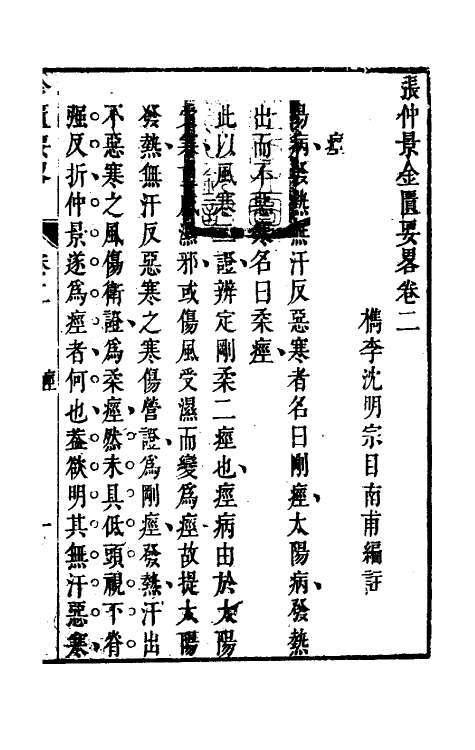 張仲景金匱要畧卷二
檇李沈明宗目南甫編註
痙
陽病發熱無汗反惡寒者名曰剛痙太陽病發熱
出而不惡寒名曰柔痙
此以風寒二證辨定剛柔二痙也痙病由於太陽
濕邪或傷風受濕而變爲痙故提太陽
發熱無汗反惡寒之寒傷營證爲剛痙發熱汗出
不惡寒之風傷衛證爲柔痙然未具低頭視下脊
强反折仲景遂爲痙者何也葢欲明其無汗惡寒
金匱要畧
卷二
痙
一